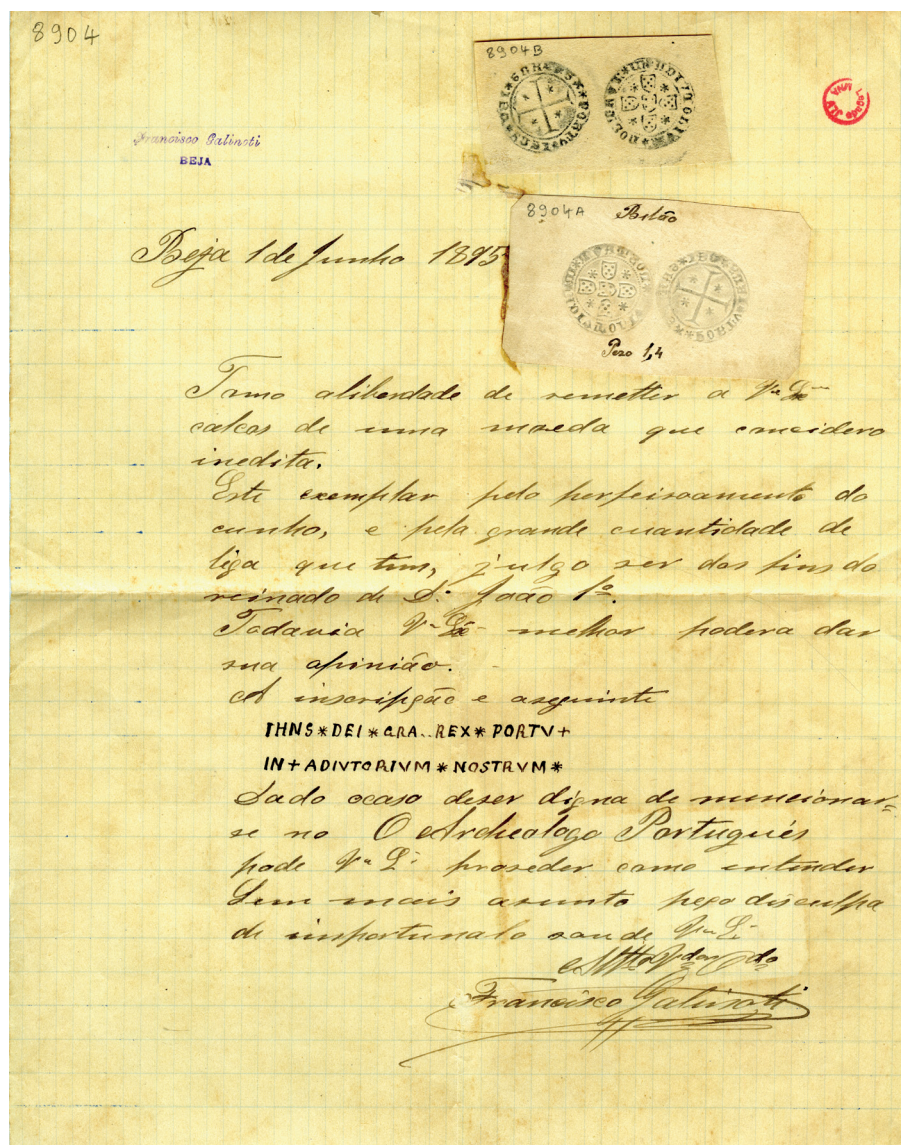 8904
8904B
Francisco Galinoti
BEJA
8904A Bilhão
Beja 1 de Junho 1895
Pezo 1,4
Tomo aliberdade de remetter a Vª Exª
calcos de uma moeda que concidero
inedita.
Este exemplar pelo perfeisoamento do
cunho, e pela grande cuantidade de
liga que tem, julgo ser dos fins do
reinado de D. João 1º.
Todavia Vª Exª melhor podera dar
sua opinião.
A inscripção e aseguinte
IHNS*DEI*GRA..REX*PORTV+
IN+ADIVTORIVM*NOSTRVM*
Dado ocaso deser digna de muncionar=
se no O Archeologo Portugués
pode Vª Eª proseder como intender
Sem mais asunto peço disculpa
de importunalo sou de Vª Eª
Francisco Galinoti